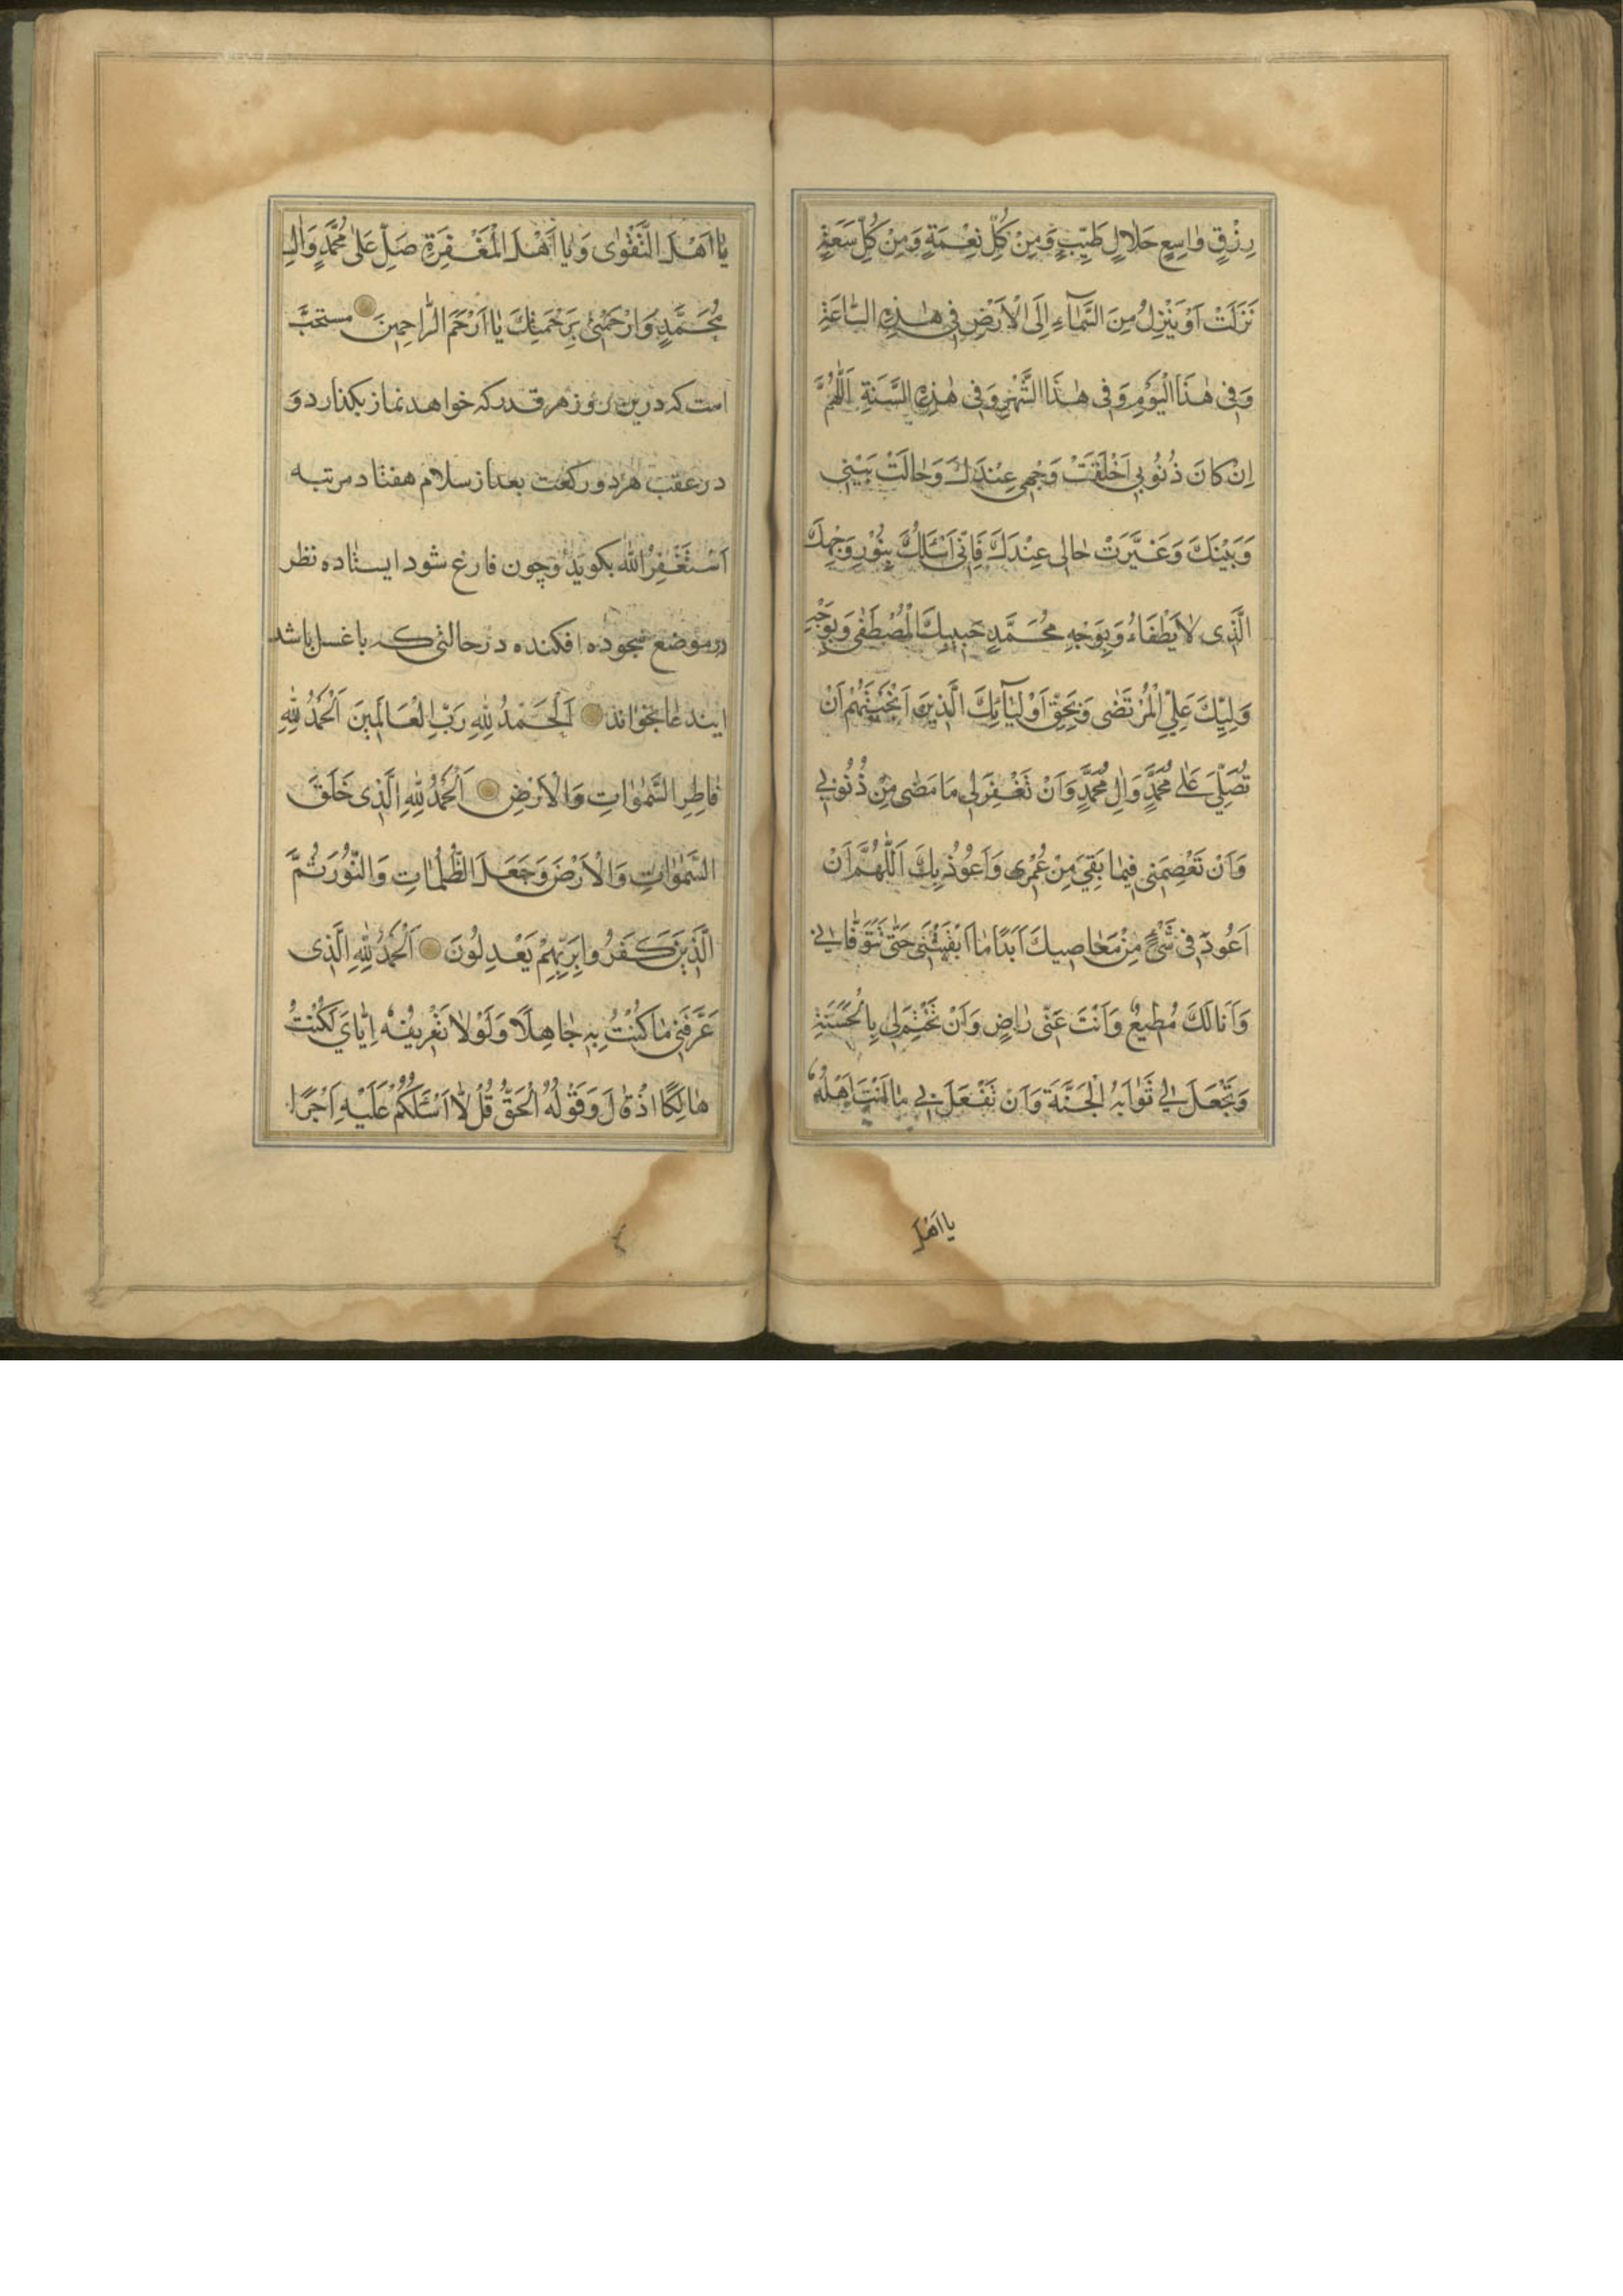 رِزْقٍ وٰاسِعٍ حَلاٰلٍ طَيِّبٍ وَمِنْ كُلِّ نِعْمَةٍ وَمِنْ كُلِّ سَعَةٍ
نَزَلَتْ اَوْ يَنْزِلُ مِنَ السَّمٰآءِ اِلَى الْاَرْضِ فِى هٰذِهِ السّٰاعَةِ
وَفِى هٰذَا الْيَوْمِ وَفِى هٰذَا الشَّهْرِ وَفِى هٰذِهِ السَّنَةِ اَللّٰهُمَّ
اِنْ كٰانَ ذُنُوبِى اَخْلَقَتْ وَجْهِى عِنْدَكَ وَحٰالَتْ بَيْنِى
وَبَيْنَكَ وَغَيَّرَتْ حٰالِى عِنْدَكَ فَاِنِّى اَسْئَلُكَ بِنُورِ وَجْهِكَ
الَّذِى لاٰ يَطْفَاءُ وَبِوَجْهِ مُحَمَّدٍ حَبِيبِكَ الْمُصْطَفٰى وَبِوَجْهِ
وَلِيِّكَ عَلِيٍّ الْمُرْتَضٰى وَبِحَقِّ اَوْلِيٰآئِكَ الَّذِينَ اَنْتَجَبْتَهُمْ اَنْ
تُصَلِّيَ عَلٰى مُحَمَّدٍ وَاٰلِ مُحَمَّدٍ وَاَنْ تَغْفِرَ لِى مٰا مَضٰى مِنْ ذُنُوبِى
وَاَنْ تَعْصِمَنِى فِيمٰا بَقِيَ مِنْ عُمْرِى وَاَعُوذُ بِكَ اَللّٰهُمَّ اَنْ
اَعُودَ فِى شَيْءٍ مِنْ مَعٰاصِيكَ اَبَدًا مٰا اَبْقَيْتَنِى حَتّٰى تَتَوَفّٰانِى
وَاَنَا لَكَ مُطِيعٌ وَاَنْتَ عَنِّى رٰاضٍ وَاَنْ تَخْتِمَ لِى بِالْحَسَنَةِ
وَتَجْعَلَ لِى ثَوٰابَهُ الْجَنَّةَ وَاَنْ تَفْعَلَ بِى مٰا اَنْتَ اَهْلُهُ
يا اَهْلَ
يٰا اَهْلَ التَّقْوٰى وَيٰا اَهْلَ الْمَغْفِرَةِ صَلِّ عَلٰى مُحَمَّدٍ وَاٰلِ
مُحَمَّدٍ وَارْحَمْنِى بِرَحْمَتِكَ يٰا اَرْحَمَ الرّٰاحِمِينَ مستحبّ
است که درین روز هر قدر که خواهد نماز بکذارد و
در عقب هر دو رکعت بعد از سلام هفتاد مرتبه
اَسْتَغْفِرُ اللّٰهَ بکوید و چون فارغ شود ایستاده نظر
در موضع سجود افکنده در حالتی که با غسل باشد
ایندعا بخواند اَلْحَمْدُ لِلّٰهِ رَبِّ الْعٰالَمِينَ اَلْحَمْدُ لِلّٰهِ
فٰاطِرِ السَّمٰوٰاتِ وَالْاَرْضِ اَلْحَمْدُ لِلّٰهِ الَّذِى خَلَقَ
السَّمٰوٰاتِ وَالْاَرْضَ وَجَعَلَ الظُّلُمٰاتِ وَالنُّورَ ثُمَّ
الَّذِينَ كَفَرُوا بِرَبِّهِمْ يَعْدِلُونَ اَلْحَمْدُ لِلّٰهِ الَّذِى
عَرَّفَنِى مٰا كُنْتُ بِهِ جٰاهِلًا وَلَوْلاٰ تَعْرِيفُهُ اِيّٰايَ لَكُنْتُ
هٰالِكًا اِذْ قٰالَ وَقَوْلُهُ الْحَقُّ قُلْ لاٰ اَسْئَلُكُمْ عَلَيْهِ اَجْرًا